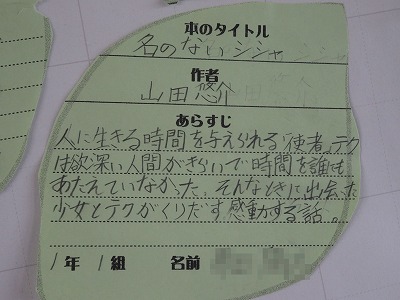 本のタイトル
名のないシシャ
作者
山田悠介
あらすじ
人に生きる時間を与えられる「使者」テク
は欲深い人間がきらいで時間を誰にも
あたえていなかった。そんなときに出会った
少女とテクがくりだす感動する話。
/年 /組 名前